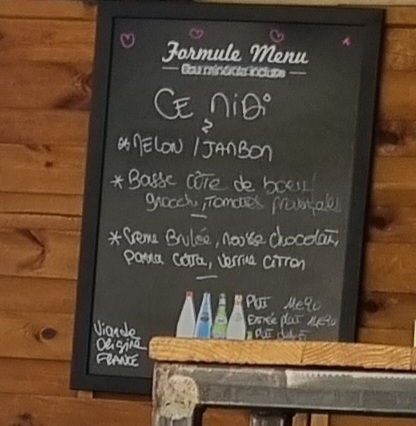 Formule Menu
Eau minérale incluse
CE MiDi
* MELON / JAMBON
* Basse Côte de boeuf
gnocchi, Tomates provençales
* Creme Brulée, mousse chocolat,
panna cotta, verrine citron
Plat 11e90
Entrée plat
Plat
Viande
Origine
FRANCE